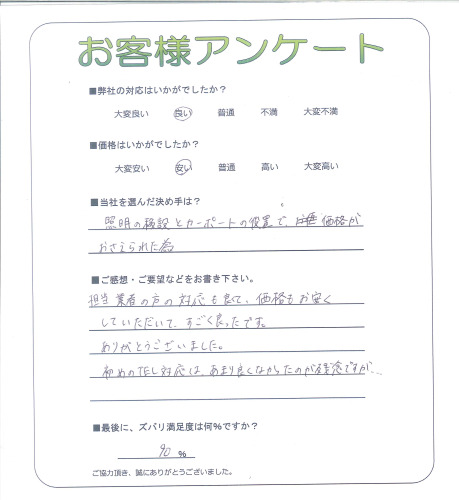 お客様アンケート
■弊社の対応はいかがでしたか？
大変良い 良い 普通 不満 大変不満
■価格はいかがでしたか？
大変安い 安い 普通 高い 大変高い
■当社を選んだ決め手は？
照明の移設とカーポートの設置で、価格が
おさえられた為
■ご感想・ご要望などをお書き下さい。
担当業者の方の対応も良くて、価格もお安く
していただいて、すごく良ったです。
ありがとうございました。
初めの 対応は、あまり良くなかったのが残念ですが…
■最後に、ズバリ満足度は何％ですか？
90 %
ご協力頂き、誠にありがとうございました。